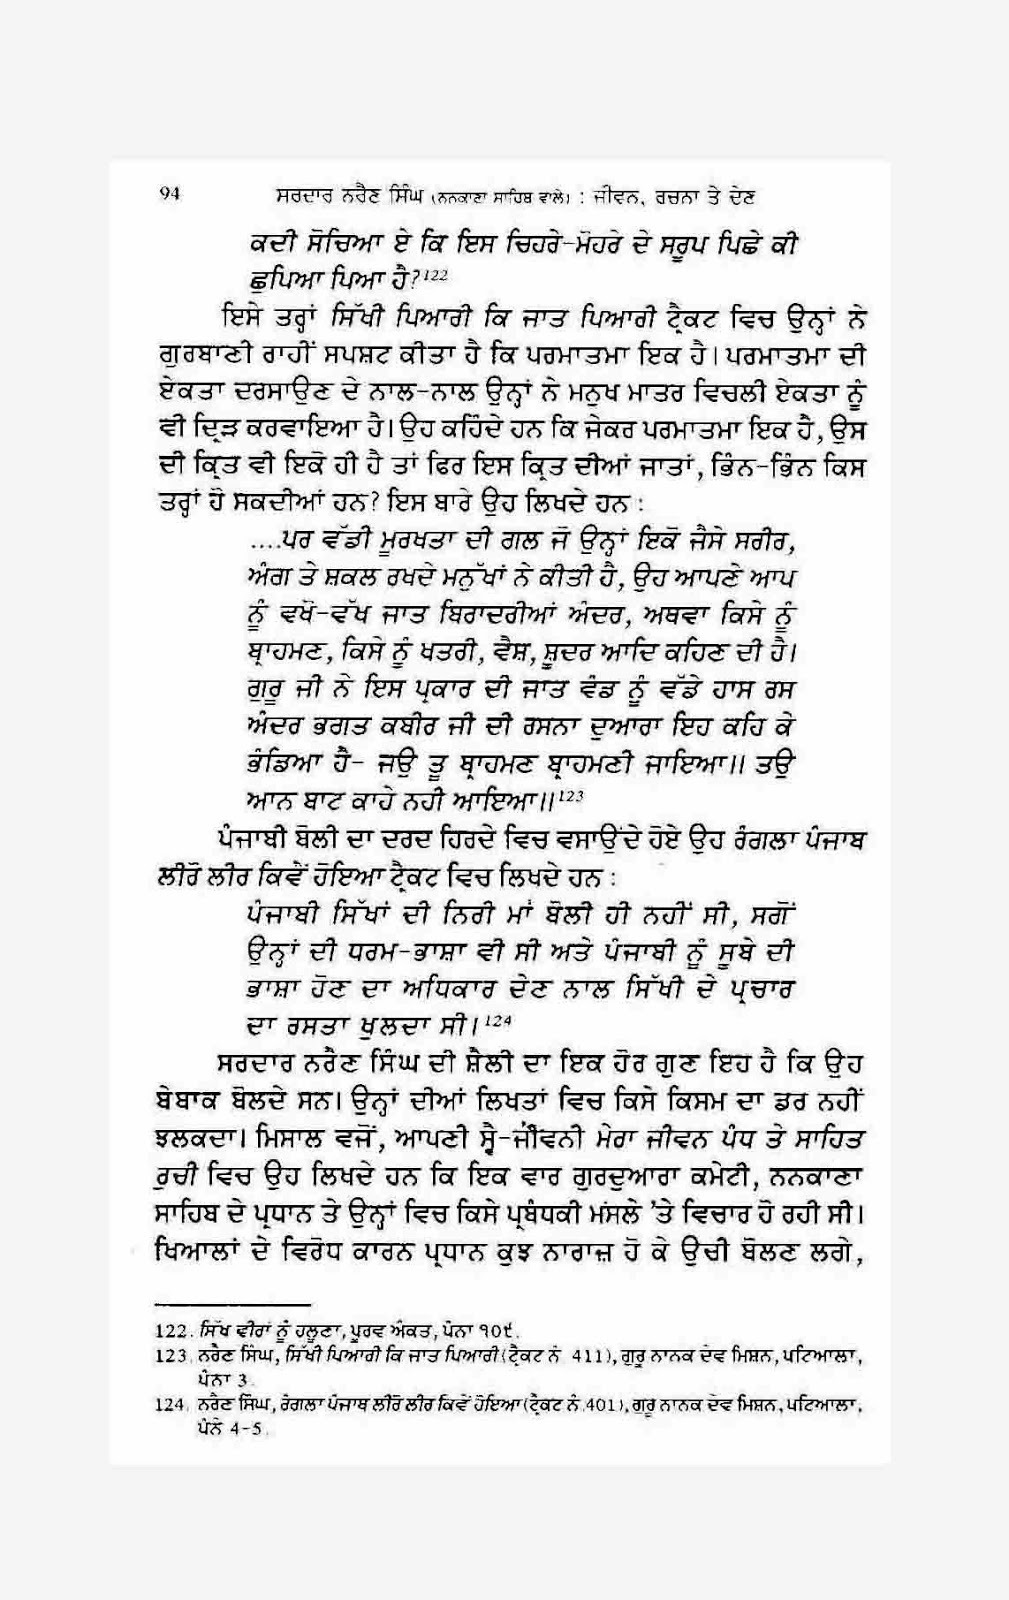 94 ਸਰਦਾਰ ਨਰੈਣ ਸਿੰਘ (ਨਨਕਾਣਾ ਸਾਹਿਬ ਵਾਲੇ) : ਜੀਵਨ, ਰਚਨਾ ਤੇ ਦੇਣ
ਕਦੀ ਸੋਚਿਆ ਏ ਕਿ ਇਸ ਚਿਹਰੇ-ਮੋਹਰੇ ਦੇ ਸਰੂਪ ਪਿਛੇ ਕੀ
ਛੁਪਿਆ ਪਿਆ ਹੈ?122
ਇਸੇ ਤਰ੍ਹਾਂ ਸਿੱਖੀ ਪਿਆਰੀ ਕਿ ਜਾਤ ਪਿਆਰੀ ਟ੍ਰੈਕਟ ਵਿਚ ਉਨ੍ਹਾਂ ਨੇ
ਗੁਰਬਾਣੀ ਰਾਹੀਂ ਸਪਸ਼ਟ ਕੀਤਾ ਹੈ ਕਿ ਪਰਮਾਤਮਾ ਇਕ ਹੈ। ਪਰਮਾਤਮਾ ਦੀ
ਏਕਤਾ ਦਰਸਾਉਣ ਦੇ ਨਾਲ-ਨਾਲ ਉਨ੍ਹਾਂ ਨੇ ਮਨੁਖ ਮਾਤਰ ਵਿਚਲੀ ਏਕਤਾ ਨੂੰ
ਵੀ ਦ੍ਰਿੜ ਕਰਵਾਇਆ ਹੈ। ਉਹ ਕਹਿੰਦੇ ਹਨ ਕਿ ਜੇਕਰ ਪਰਮਾਤਮਾ ਇਕ ਹੈ, ਉਸ
ਦੀ ਕ੍ਰਿਤ ਵੀ ਇਕੋ ਹੀ ਹੈ ਤਾਂ ਫਿਰ ਇਸ ਕ੍ਰਿਤ ਦੀਆਂ ਜਾਤਾਂ, ਭਿੰਨ-ਭਿੰਨ ਕਿਸ
ਤਰ੍ਹਾਂ ਹੋ ਸਕਦੀਆਂ ਹਨ? ਇਸ ਬਾਰੇ ਉਹ ਲਿਖਦੇ ਹਨ :
....ਪਰ ਵੱਡੀ ਮੂਰਖਤਾ ਦੀ ਗਲ ਜੋ ਉਨ੍ਹਾਂ ਇਕੋ ਜੈਸੇ ਸਰੀਰ,
ਅੰਗ ਤੇ ਸ਼ਕਲ ਰਖਦੇ ਮਨੁੱਖਾਂ ਨੇ ਕੀਤੀ ਹੈ, ਉਹ ਆਪਣੇ ਆਪ
ਨੂੰ ਵਖੋ-ਵੱਖ ਜਾਤ ਬਿਰਾਦਰੀਆਂ ਅੰਦਰ, ਅਥਵਾ ਕਿਸੇ ਨੂੰ
ਬ੍ਰਾਹਮਣ, ਕਿਸੇ ਨੂੰ ਖਤਰੀ, ਵੈਸ਼, ਸ਼ੂਦਰ ਆਦਿ ਕਹਿਣ ਦੀ ਹੈ।
ਗੁਰੂ ਜੀ ਨੇ ਇਸ ਪ੍ਰਕਾਰ ਦੀ ਜਾਤ ਵੰਡ ਨੂੰ ਵੱਡੇ ਹਾਸ ਰਸ
ਅੰਦਰ ਭਗਤ ਕਬੀਰ ਜੀ ਦੀ ਰਸਨਾ ਦੁਆਰਾ ਇਹ ਕਹਿ ਕੇ
ਭੰਡਿਆ ਹੈ- ਜਉ ਤੂ ਬ੍ਰਾਹਮਣ ਬ੍ਰਾਹਮਣੀ ਜਾਇਆ॥ ਤਉ
ਆਨ ਬਾਟ ਕਾਹੇ ਨਹੀ ਆਇਆ॥123
ਪੰਜਾਬੀ ਬੋਲੀ ਦਾ ਦਰਦ ਹਿਰਦੇ ਵਿਚ ਵਸਾਉਂਦੇ ਹੋਏ ਉਹ ਰੰਗਲਾ ਪੰਜਾਬ
ਲੀਰੋ ਲੀਰ ਕਿਵੇਂ ਹੋਇਆ ਟ੍ਰੈਕਟ ਵਿਚ ਲਿਖਦੇ ਹਨ :
ਪੰਜਾਬੀ ਸਿੱਖਾਂ ਦੀ ਨਿਰੀ ਮਾਂ ਬੋਲੀ ਹੀ ਨਹੀਂ ਸੀ, ਸਗੋਂ
ਉਨ੍ਹਾਂ ਦੀ ਧਰਮ-ਭਾਸ਼ਾ ਵੀ ਸੀ ਅਤੇ ਪੰਜਾਬੀ ਨੂੰ ਸੂਬੇ ਦੀ
ਭਾਸ਼ਾ ਹੋਣ ਦਾ ਅਧਿਕਾਰ ਦੇਣ ਨਾਲ ਸਿੱਖੀ ਦੇ ਪ੍ਰਚਾਰ
ਦਾ ਰਸਤਾ ਖੁਲਦਾ ਸੀ।124
ਸਰਦਾਰ ਨਰੈਣ ਸਿੰਘ ਦੀ ਸ਼ੈਲੀ ਦਾ ਇਕ ਹੋਰ ਗੁਣ ਇਹ ਹੈ ਕਿ ਉਹ
ਬੇਬਾਕ ਬੋਲਦੇ ਸਨ। ਉਨ੍ਹਾਂ ਦੀਆਂ ਲਿਖਤਾਂ ਵਿਚ ਕਿਸੇ ਕਿਸਮ ਦਾ ਡਰ ਨਹੀਂ
ਝਲਕਦਾ। ਮਿਸਾਲ ਵਜੋਂ, ਆਪਣੀ ਸ੍ਵੈ-ਜੀਵਨੀ ਮੇਰਾ ਜੀਵਨ ਪੰਧ ਤੇ ਸਾਹਿਤ
ਰੁਚੀ ਵਿਚ ਉਹ ਲਿਖਦੇ ਹਨ ਕਿ ਇਕ ਵਾਰ ਗੁਰਦੁਆਰਾ ਕਮੇਟੀ, ਨਨਕਾਣਾ
ਸਾਹਿਬ ਦੇ ਪ੍ਰਧਾਨ ਤੇ ਉਨ੍ਹਾਂ ਵਿਚ ਕਿਸੇ ਪ੍ਰਬੰਧਕੀ ਮਸਲੇ 'ਤੇ ਵਿਚਾਰ ਹੋ ਰਹੀ ਸੀ।
ਖਿਆਲਾਂ ਦੇ ਵਿਰੋਧ ਕਾਰਨ ਪ੍ਰਧਾਨ ਕੁਝ ਨਾਰਾਜ਼ ਹੋ ਕੇ ਉਚੀ ਬੋਲਣ ਲਗੇ,
122. ਸਿੱਖ ਵੀਰਾਂ ਨੂੰ ਹਲੂਣਾ, ਪੂਰਵ ਅੰਕਤ, ਪੰਨਾ ੧੦੯.
123. ਨਰੈਣ ਸਿੰਘ, ਸਿੱਖੀ ਪਿਆਰੀ ਕਿ ਜਾਤ ਪਿਆਰੀ (ਟ੍ਰੈਕਟ ਨੰ. 411), ਗੁਰੂ ਨਾਨਕ ਦੇਵ ਮਿਸ਼ਨ, ਪਟਿਆਲਾ,
ਪੰਨਾ 3.
124. ਨਰੈਣ ਸਿੰਘ, ਰੰਗਲਾ ਪੰਜਾਬ ਲੀਰੋ ਲੀਰ ਕਿਵੇਂ ਹੋਇਆ (ਟ੍ਰੈਕਟ ਨੰ. 401), ਗੁਰੂ ਨਾਨਕ ਦੇਵ ਮਿਸ਼ਨ, ਪਟਿਆਲਾ,
ਪੰਨੇ 4-5.